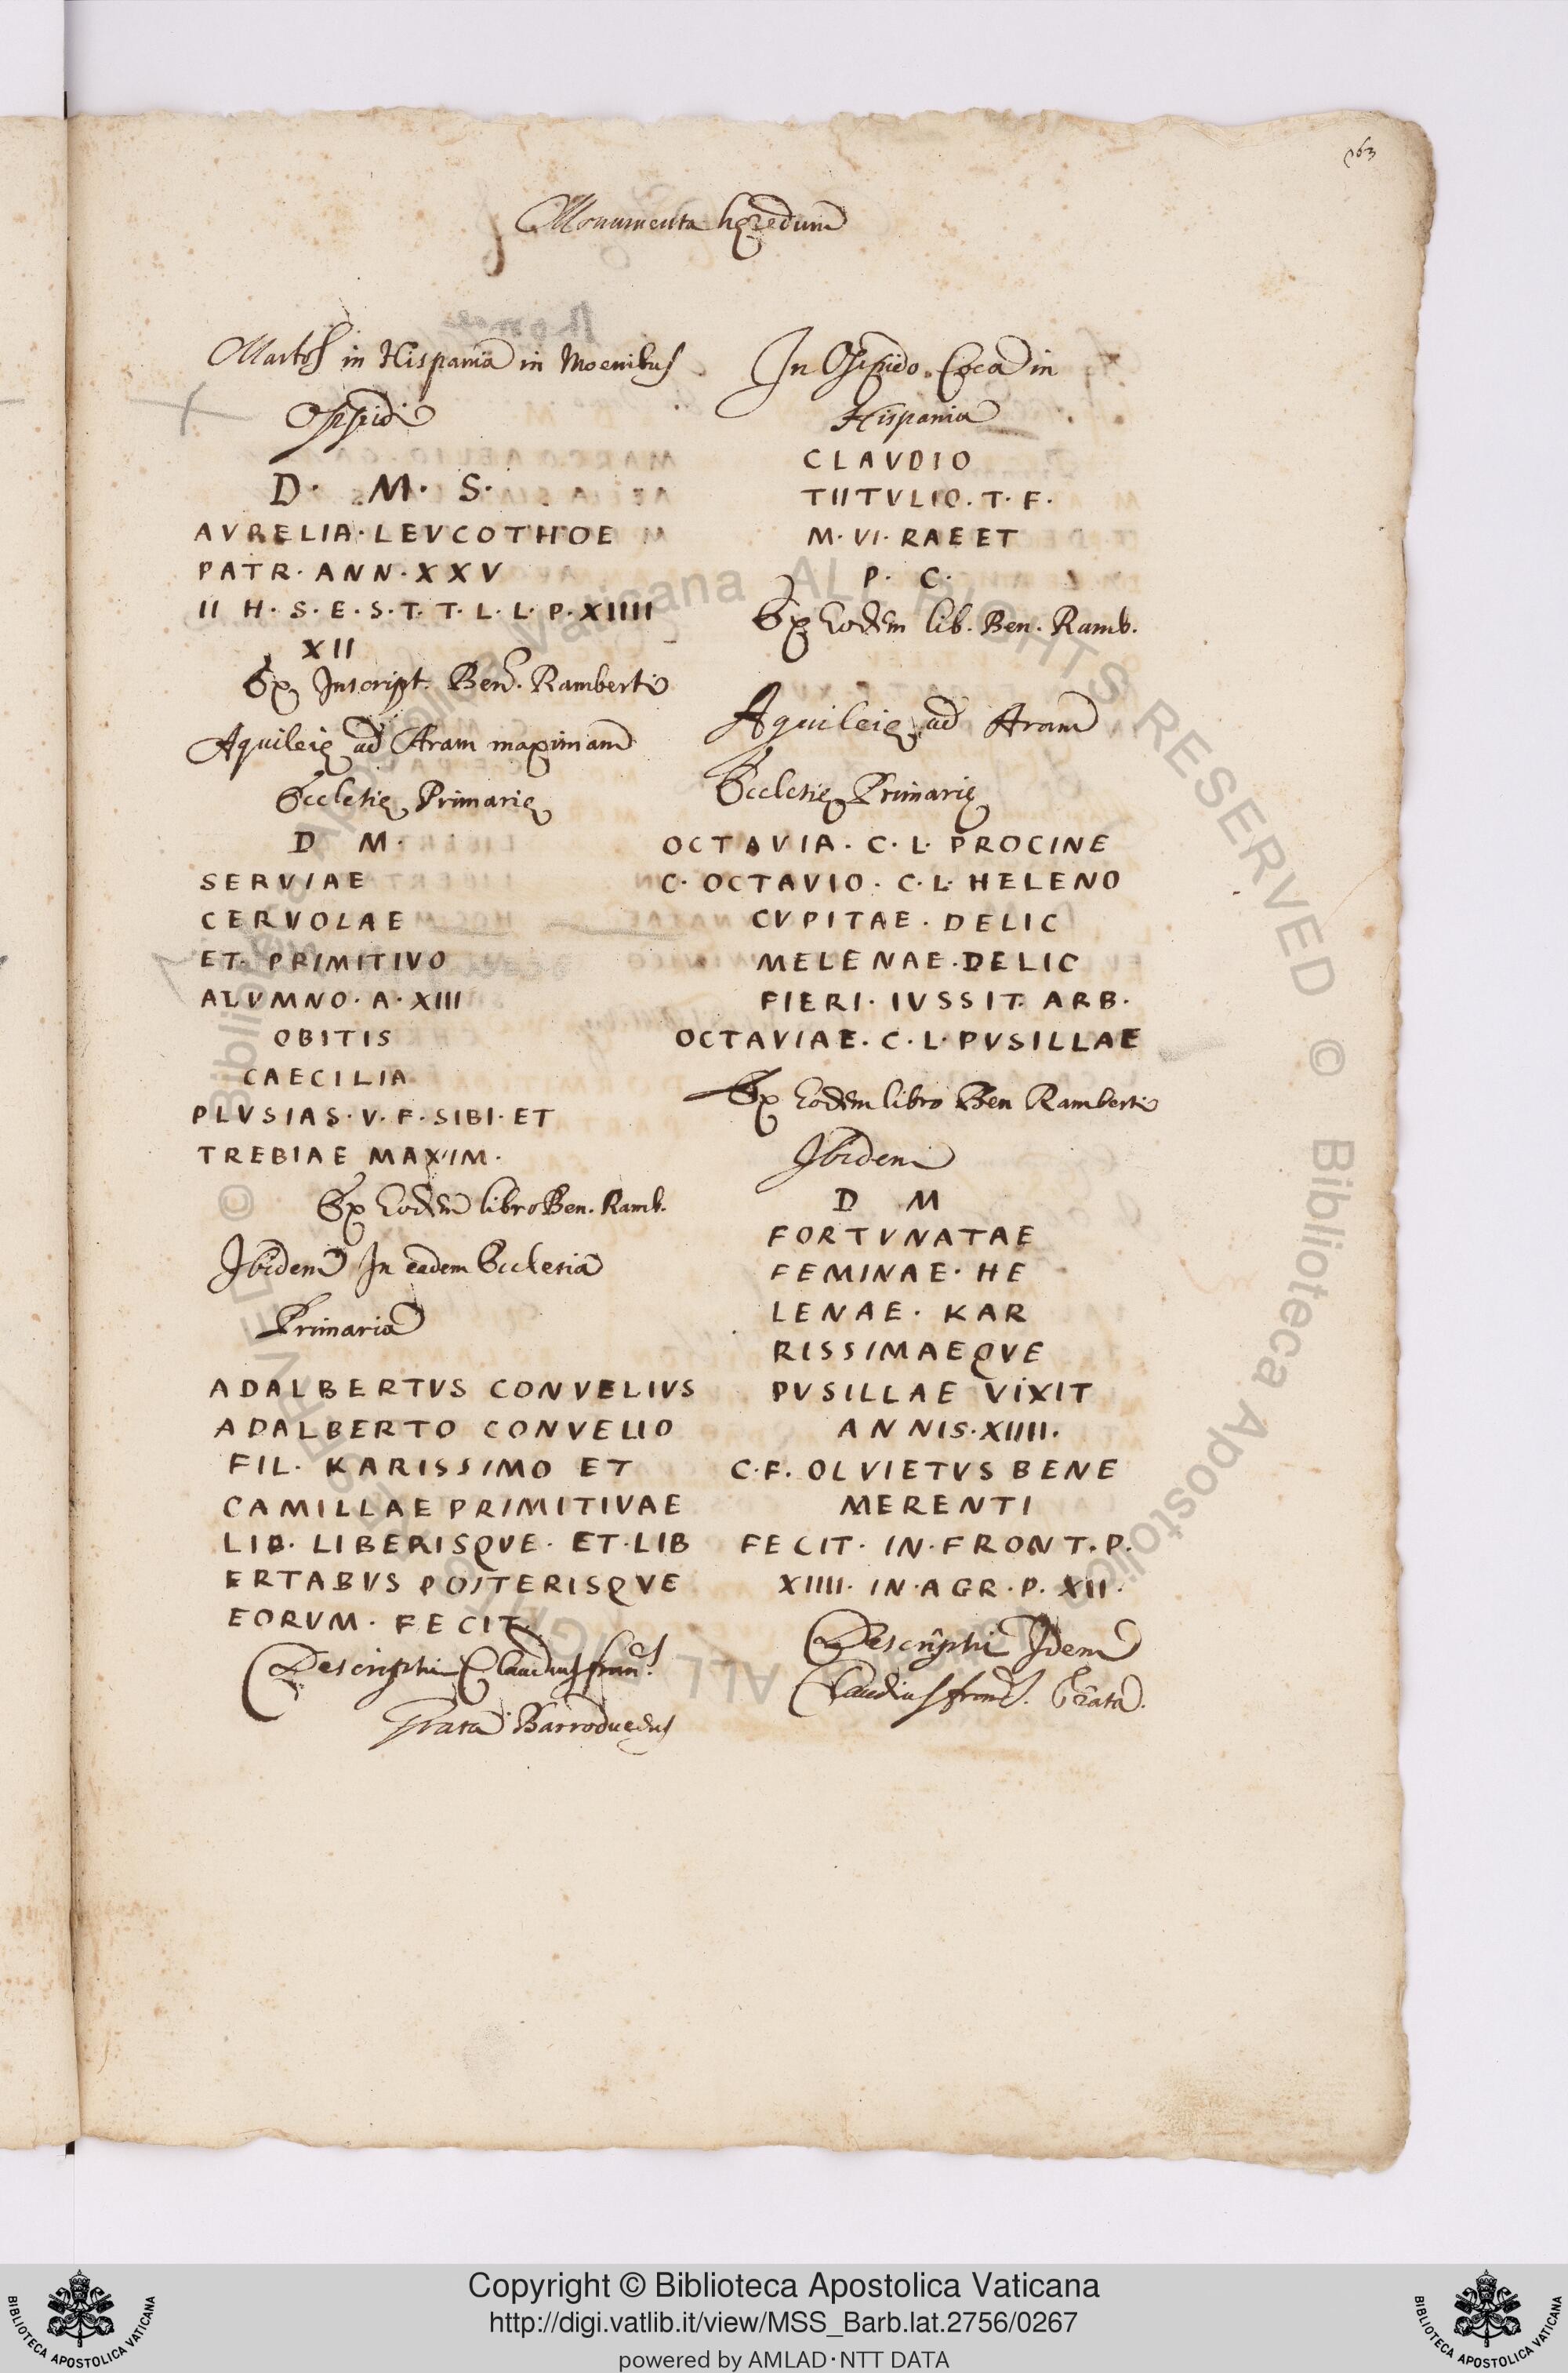 263
Monumenta hęredum
Martos in Hispania in Moenibus
Oppidi
D. M. S.
AVRELIA·LEVCOTHOE
PATR·ANN·XXV
II H·S·E·S·T·T·L·L·P·XIIII
XII
Ex Inscript. Ben. Ramberti
Aquileię ad Aram maximam
Ecclesię Primarię
D M·
SERVIAE
CERVOLAE
ET· PRIMITIVO
ALVMNO·A·XIII
OBITIS
CAECILIA
PLVSIAS·V·F·SIBI·ET
TREBIAE MAXIM·
Ex Eodem libro Ben. Ramb.
Ibidem In eadem Ecclesia
Primaria
ADALBERTVS CONVELIVS
ADALBERTO CONVELIO
FIL· KARISSIMO ET
CAMILLAE PRIMITIVAE
LIB· LIBERISQVE· ET·LIB
ERTABVS POSTERISQVE
EORVM· FECIT·
Descriphi Claudius fran.s
Grata Barroduedus
In Oppido Coca in
Hispania
CLAVDIO
TIITVLIO·T·F·
M·VI·RAEET
P· C·
Ex Eodem lib. Ben. Ramb.
Aquileię ad Aram
Ecclesię Primarię
OCTAVIA·C·L·PROCINE
C·OCTAVIO·C·L·HELENO
CVPITAE·DELIC
MELENAE·DELIC
FIERI·IVSSIT·ARB·
OCTAVIAE·C·L·PVSILLAE
Ex Eodem libro Ben Ramberti
Ibidem
D M
FORTVNATAE
FEMINAE·HE
LENAE·KAR
RISSIMAEQVE
PVSILLAE VIXIT
ANNIS·XIIII·
C·F·OLVIETVS BENE
MERENTI
FECIT·IN·FRONT·P·
XIIII·IN·AGR·P·XII·
Descriphi Idem
Claudius franc. Grata.
© Biblioteca Apostolica Vaticana ALL RIGHTS RESERVED
Copyright © Biblioteca Apostolica Vaticana
http://digi.vatlib.it/view/MSS_Barb.lat.2756/0267
powered by AMLAD·NTT DATA
BIBLIOTECA APOSTOLICA VATICANA
BIBLIOTECA APOSTOLICA VATICANA